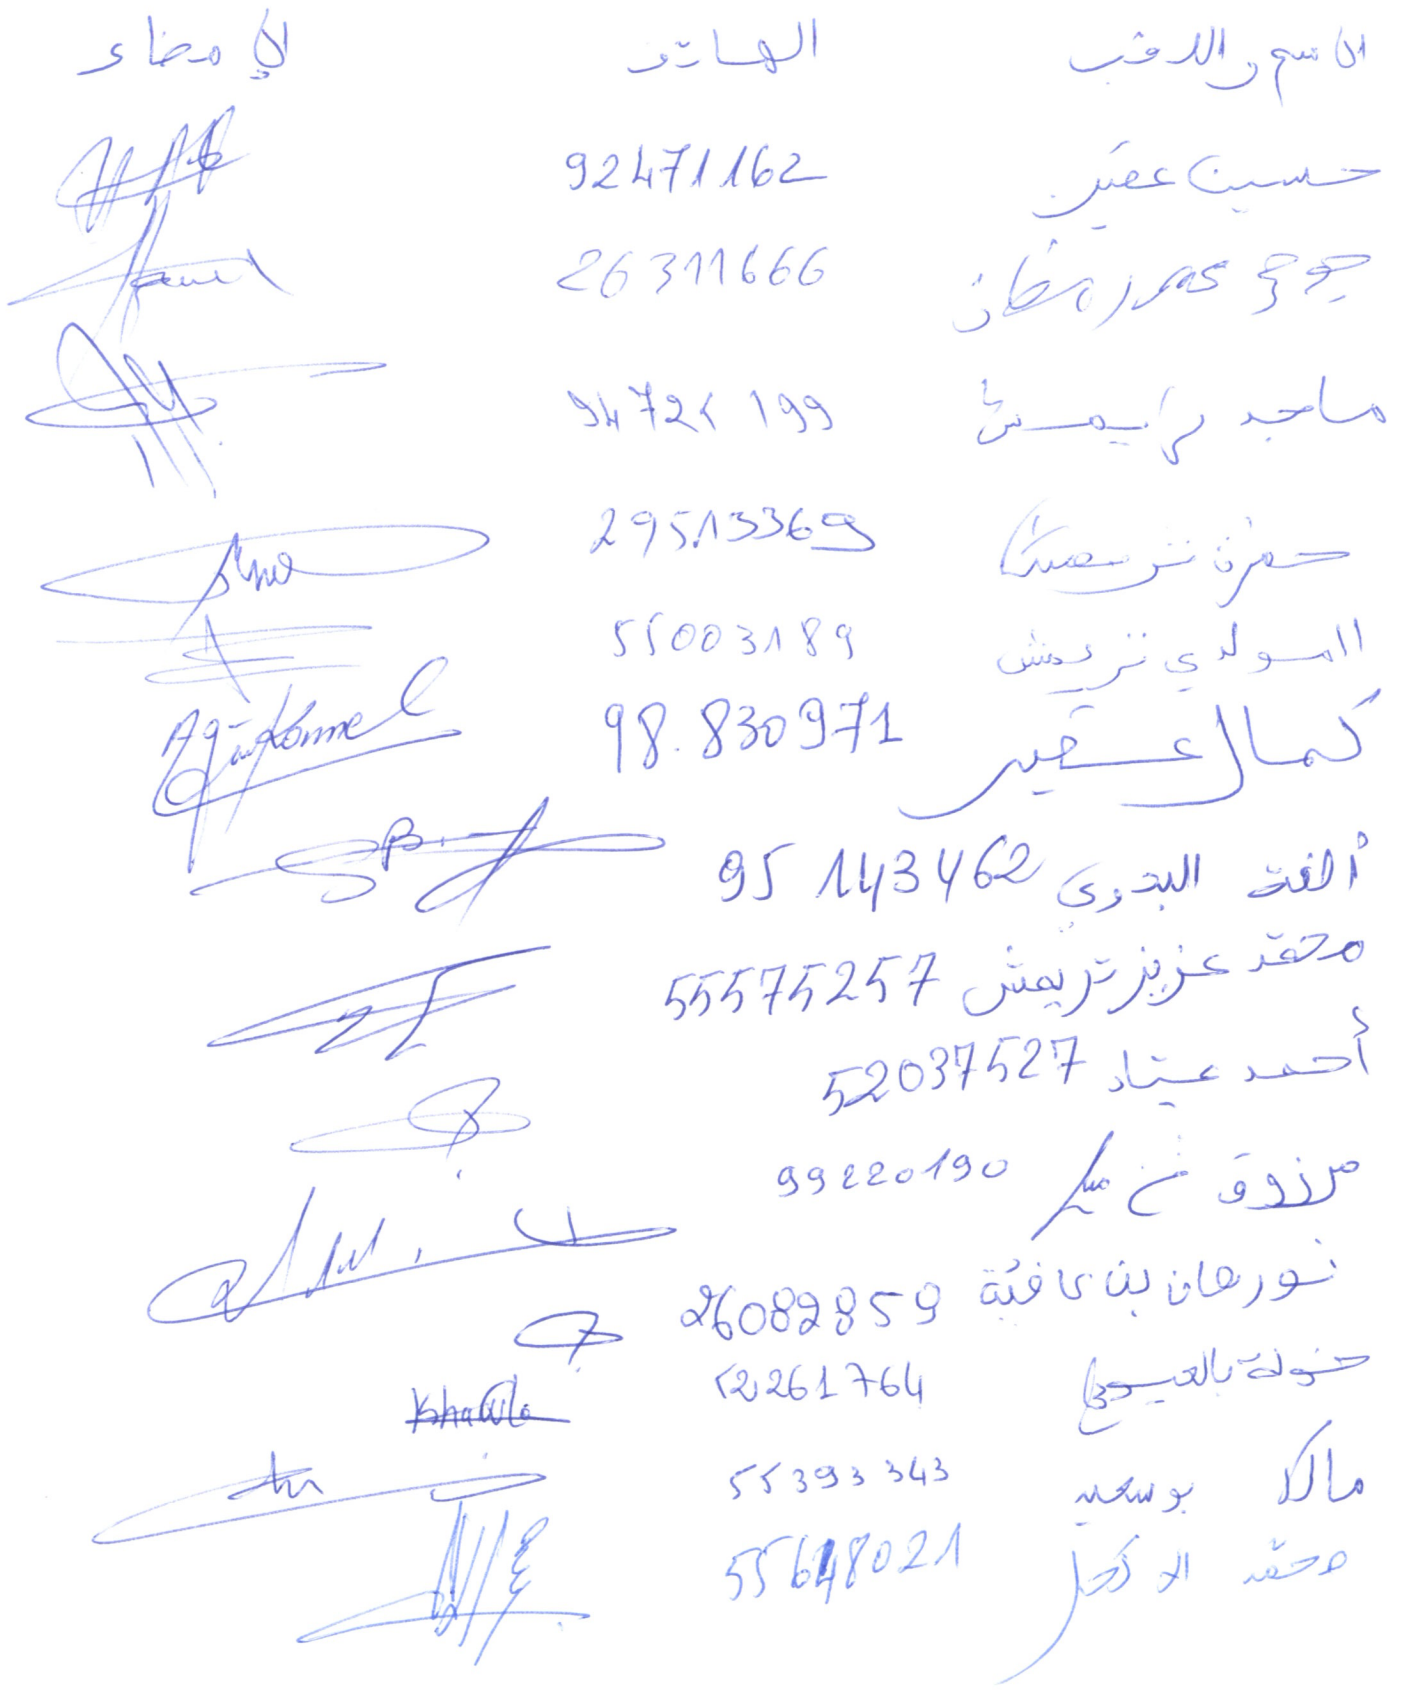 الاسم واللقب الهاتف الإمضاء
حسين عقير 92471162
26311666
ماجد 94721199
حمزة 29513369
المولدي تريمش 55003189
كمال عقير 98.830971
ألفة البدوي 95 143462
محمد عزيز تريمش 55575257
أحمد عياد 52037527
مرزوق 99220190
نورهان بن عافية 26082859
خولة 52261764 Khaoula
مالك بوسعيد 55393343
محمد 55648021